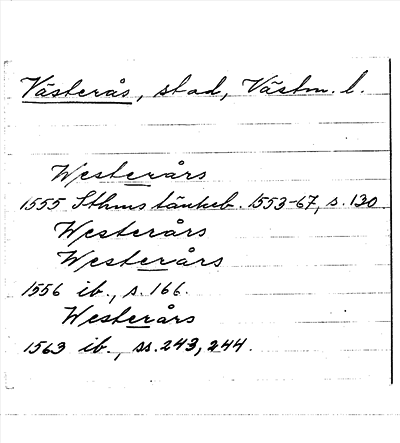 Västerås, stad, Västm. l.
Westerårs
1555 Sthms tänkeb. 1553-67, s. 130
Westerårs
Westerårs
1556 ib., s. 166.
Westerårs
1563 ib., ss. 243, 244.